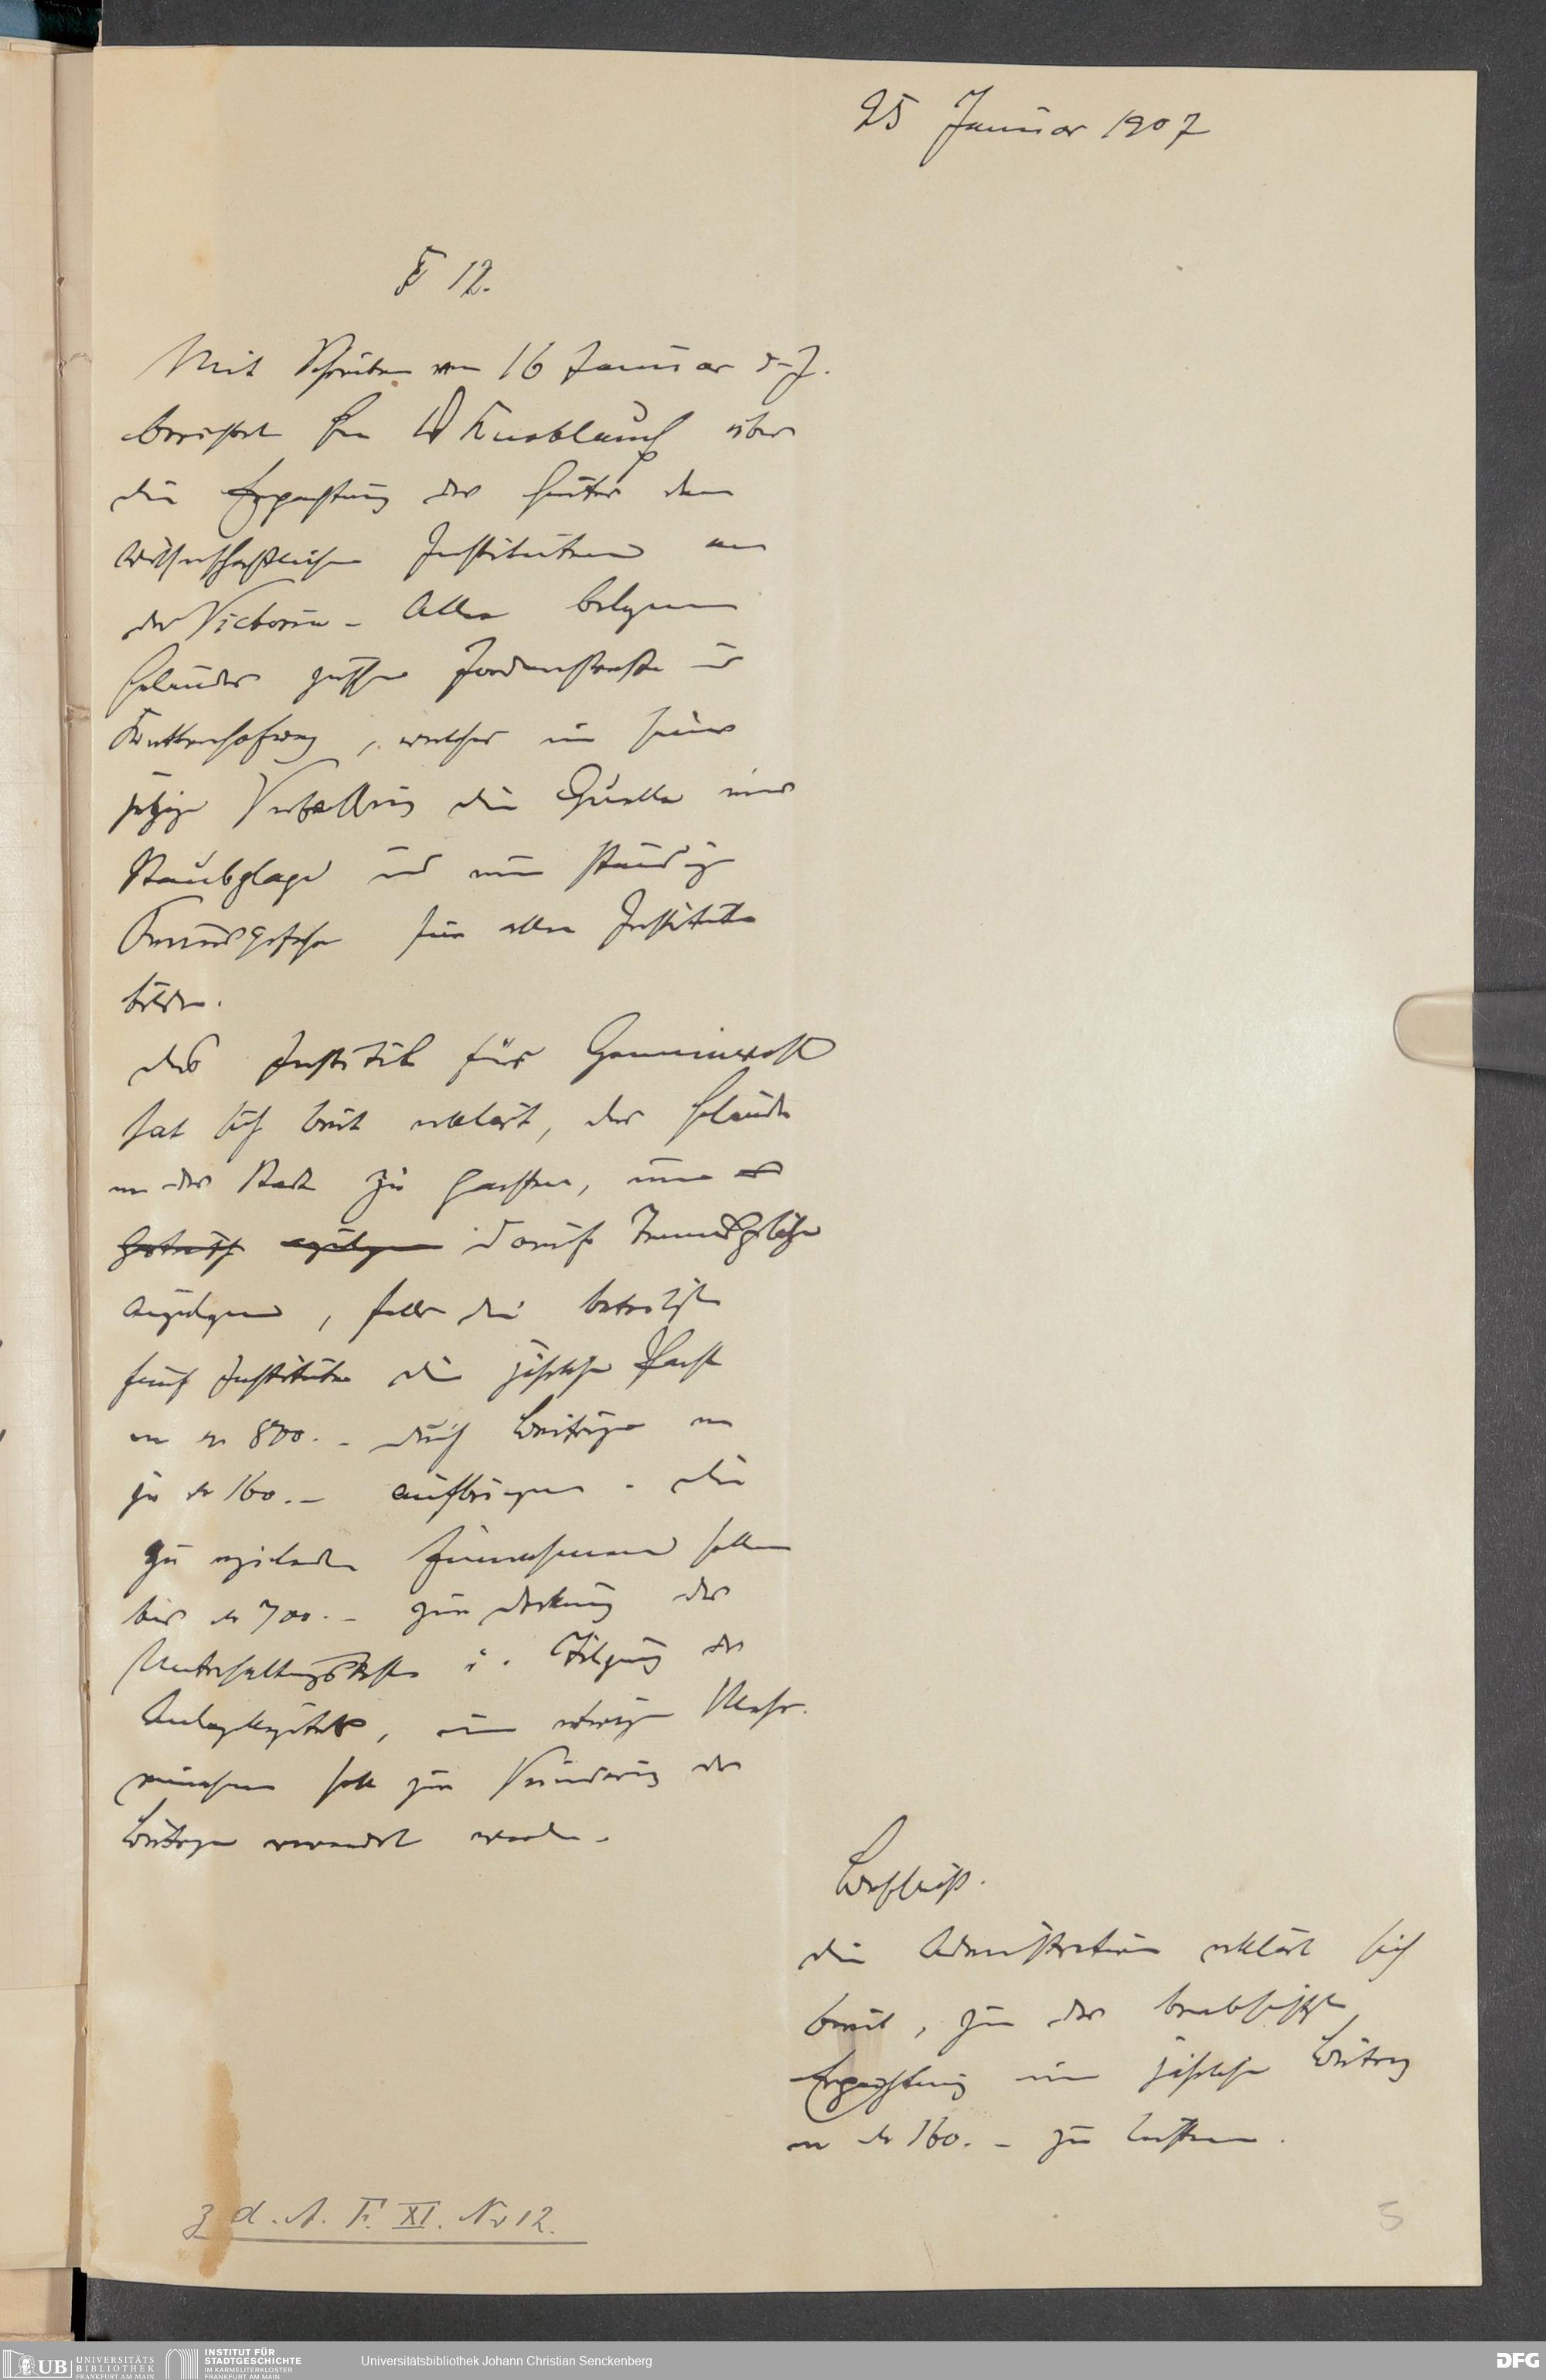 25 Januar 1907
§ 12.
Mit Schreiben vom 16 Januar d. J.
berichtet Herr Dr Knoblauch über
die Erpachtung des hinter den
wissenschaftlichen Instituten an
der Victoria-Allee belegenen
Geländes zwischen Jordanstrasse und
Kettenhofweg, welches in seiner
jetzigen Verfassung die Quelle einer
Staubplage und eine ständige
für alle Institute
bilde.
Das Institut für Gemeinwohl
hat sich bereit erklärt, das Gelände
von der Stadt zu pachten, um
darauf Tennisplätze
anzulegen, falls die beteiligten
fünf Institute die jährliche Pacht
von M 800.- durch Beiträge von
je M 160.- aufbringen. Die
zu erzielenden Einnahmen sollen
bis M 700.- zur Deckung der
Unterhaltungskosten u. Tilgung des
Anlagekapitals, eine etwaige Mehr-
einnahme soll zur Verminderung der
Beiträge verwendet werden.
Beschluß.
Die Administration erklärt sich
bereit, zu der beabsichtigten
Erpachtung einen jährlichen Beitrag
von M 160.- zu leisten.
z. d. A. F. XI. No 12.
5
UB UNIVERSITÄTS
BIBLIOTHEK
FRANKFURT AM MAIN
INSTITUT FÜR
STADTGESCHICHTE
IM KARMELITERKLOSTER
FRANKFURT AM MAIN
Universitätsbibliothek Johann Christian Senckenberg
DFG